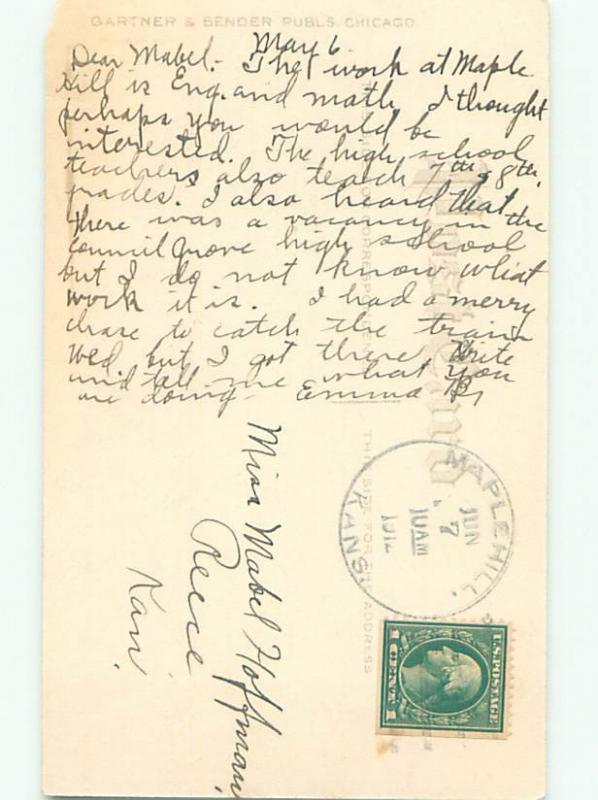 GARTNER & BENDER PUBLS. CHICAGO.
May 6
Dear Mabel:- The work at Maple
Hill is Eng. and math, I thought
perhaps you would be
interested. The high school
teachers also teach 7th & 8th
grades. I also heard that
there was a vacancy in the
Council Grove high school
but I do not know what
work it is. I had a merry
chase to catch the train
Wed but I got there. Write
and tell me what you
are doing. Emma B.
Post Card
THIS SIDE FOR CORRESPONDENCE
THIS SIDE FOR THE ADDRESS
Miss Mabel Hoffman,
Reece
Kan.
MAPLEHILL,
KANS.
JUN
7
10AM
1912
U.S. POSTAGE
1 CENT 1